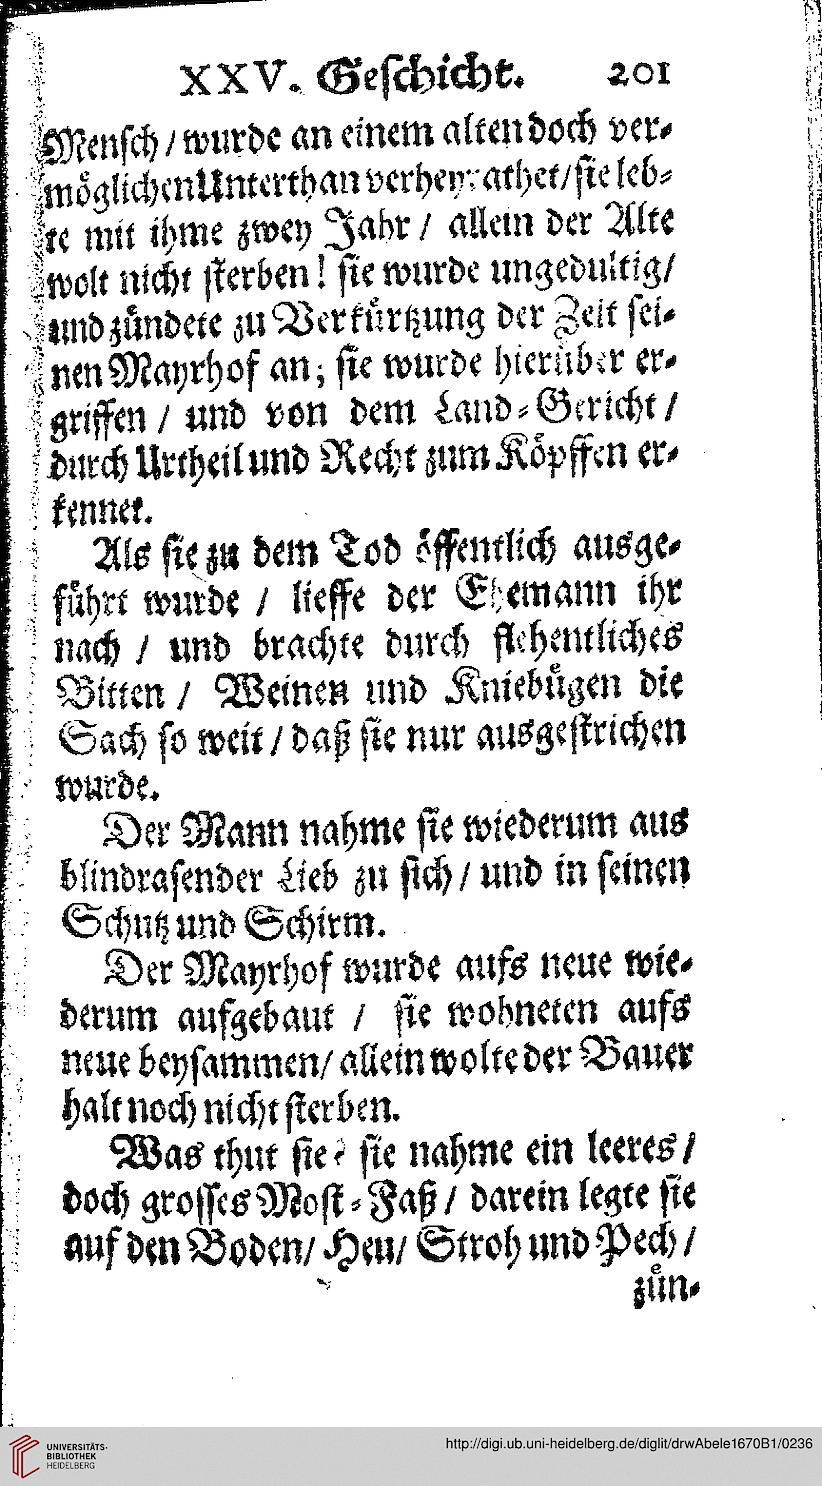 XXV. Geschicht. 201
Mensch / wurde an einem alten doch ver-
möglichen Unterthan verheyrathet / sie leb-
te mit ihme zwey Jahr / allein der Alte
wolt nicht sterben! sie wurde ungedultig /
und zündete zu Verkürtzung der Zeit sei-
nen Mayrhof an; sie wurde hierüber er-
griffen / und von dem Land-Gericht /
durch Urtheil und Recht zum Köpffen er-
kennet.
Als sie zu dem Tod öffentlich ausge-
führt wurde / lieffe der Ehemann ihr
nach / und brachte durch flehentliches
Bitten / Weinen und Kniebügen die
Sach so weit / daß sie nur ausgestrichen
wurde.
Der Mann nahme sie wiederum aus
blindrasender Lieb zu sich / und in seinen
Schutz und Schirm.
Der Mayrhof wurde aufs neue wie-
derum aufgebaut / sie wohneten aufs
neue beysammen / allein wolte der Bauer
halt noch nicht sterben.
Was thut sie? sie nahme ein leeres /
doch grosses Most-Faß / darein legte sie
auf den Boden / Heu / Stroh und Pech /
zün-
UNIVERSITÄTS-
BIBLIOTHEK
HEIDELBERG
http://digi.ub.uni-heidelberg.de/diglit/drwAbele1670B1/0236